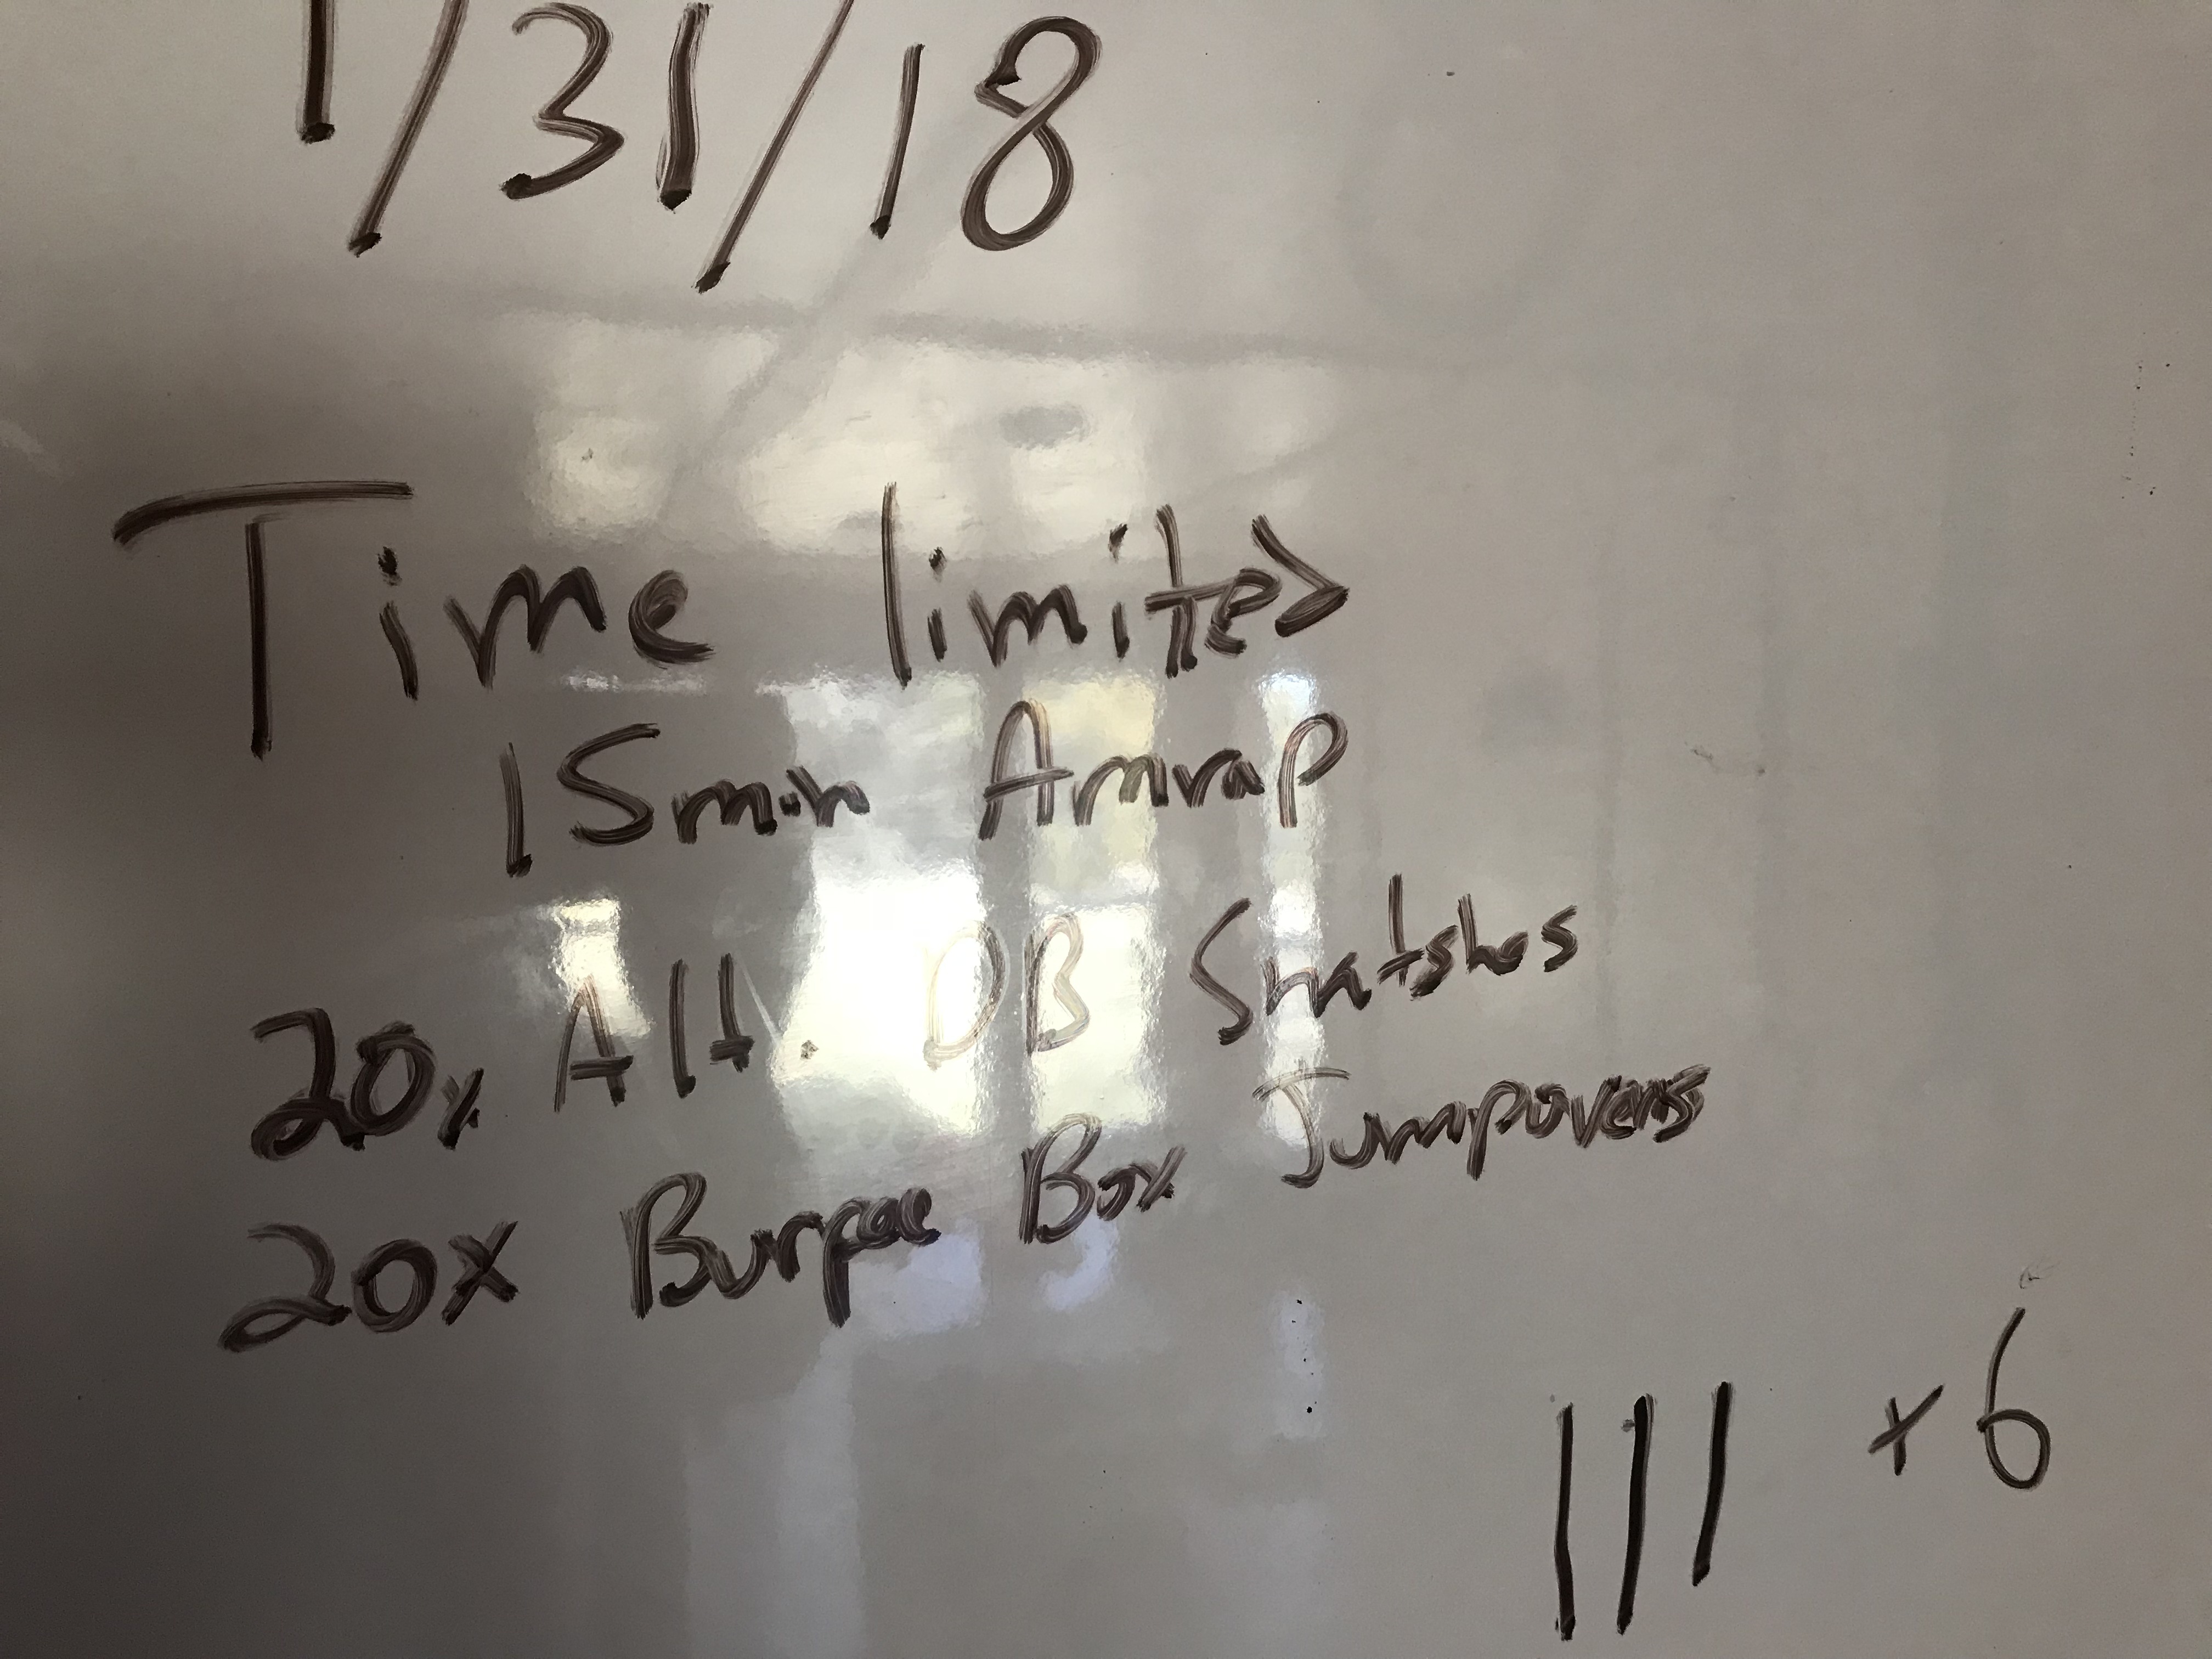 1/31/18
Time limited
15min Amrap
20x Alt. DB Snatshes
20x Burpee Box Jumpovers
||| +6